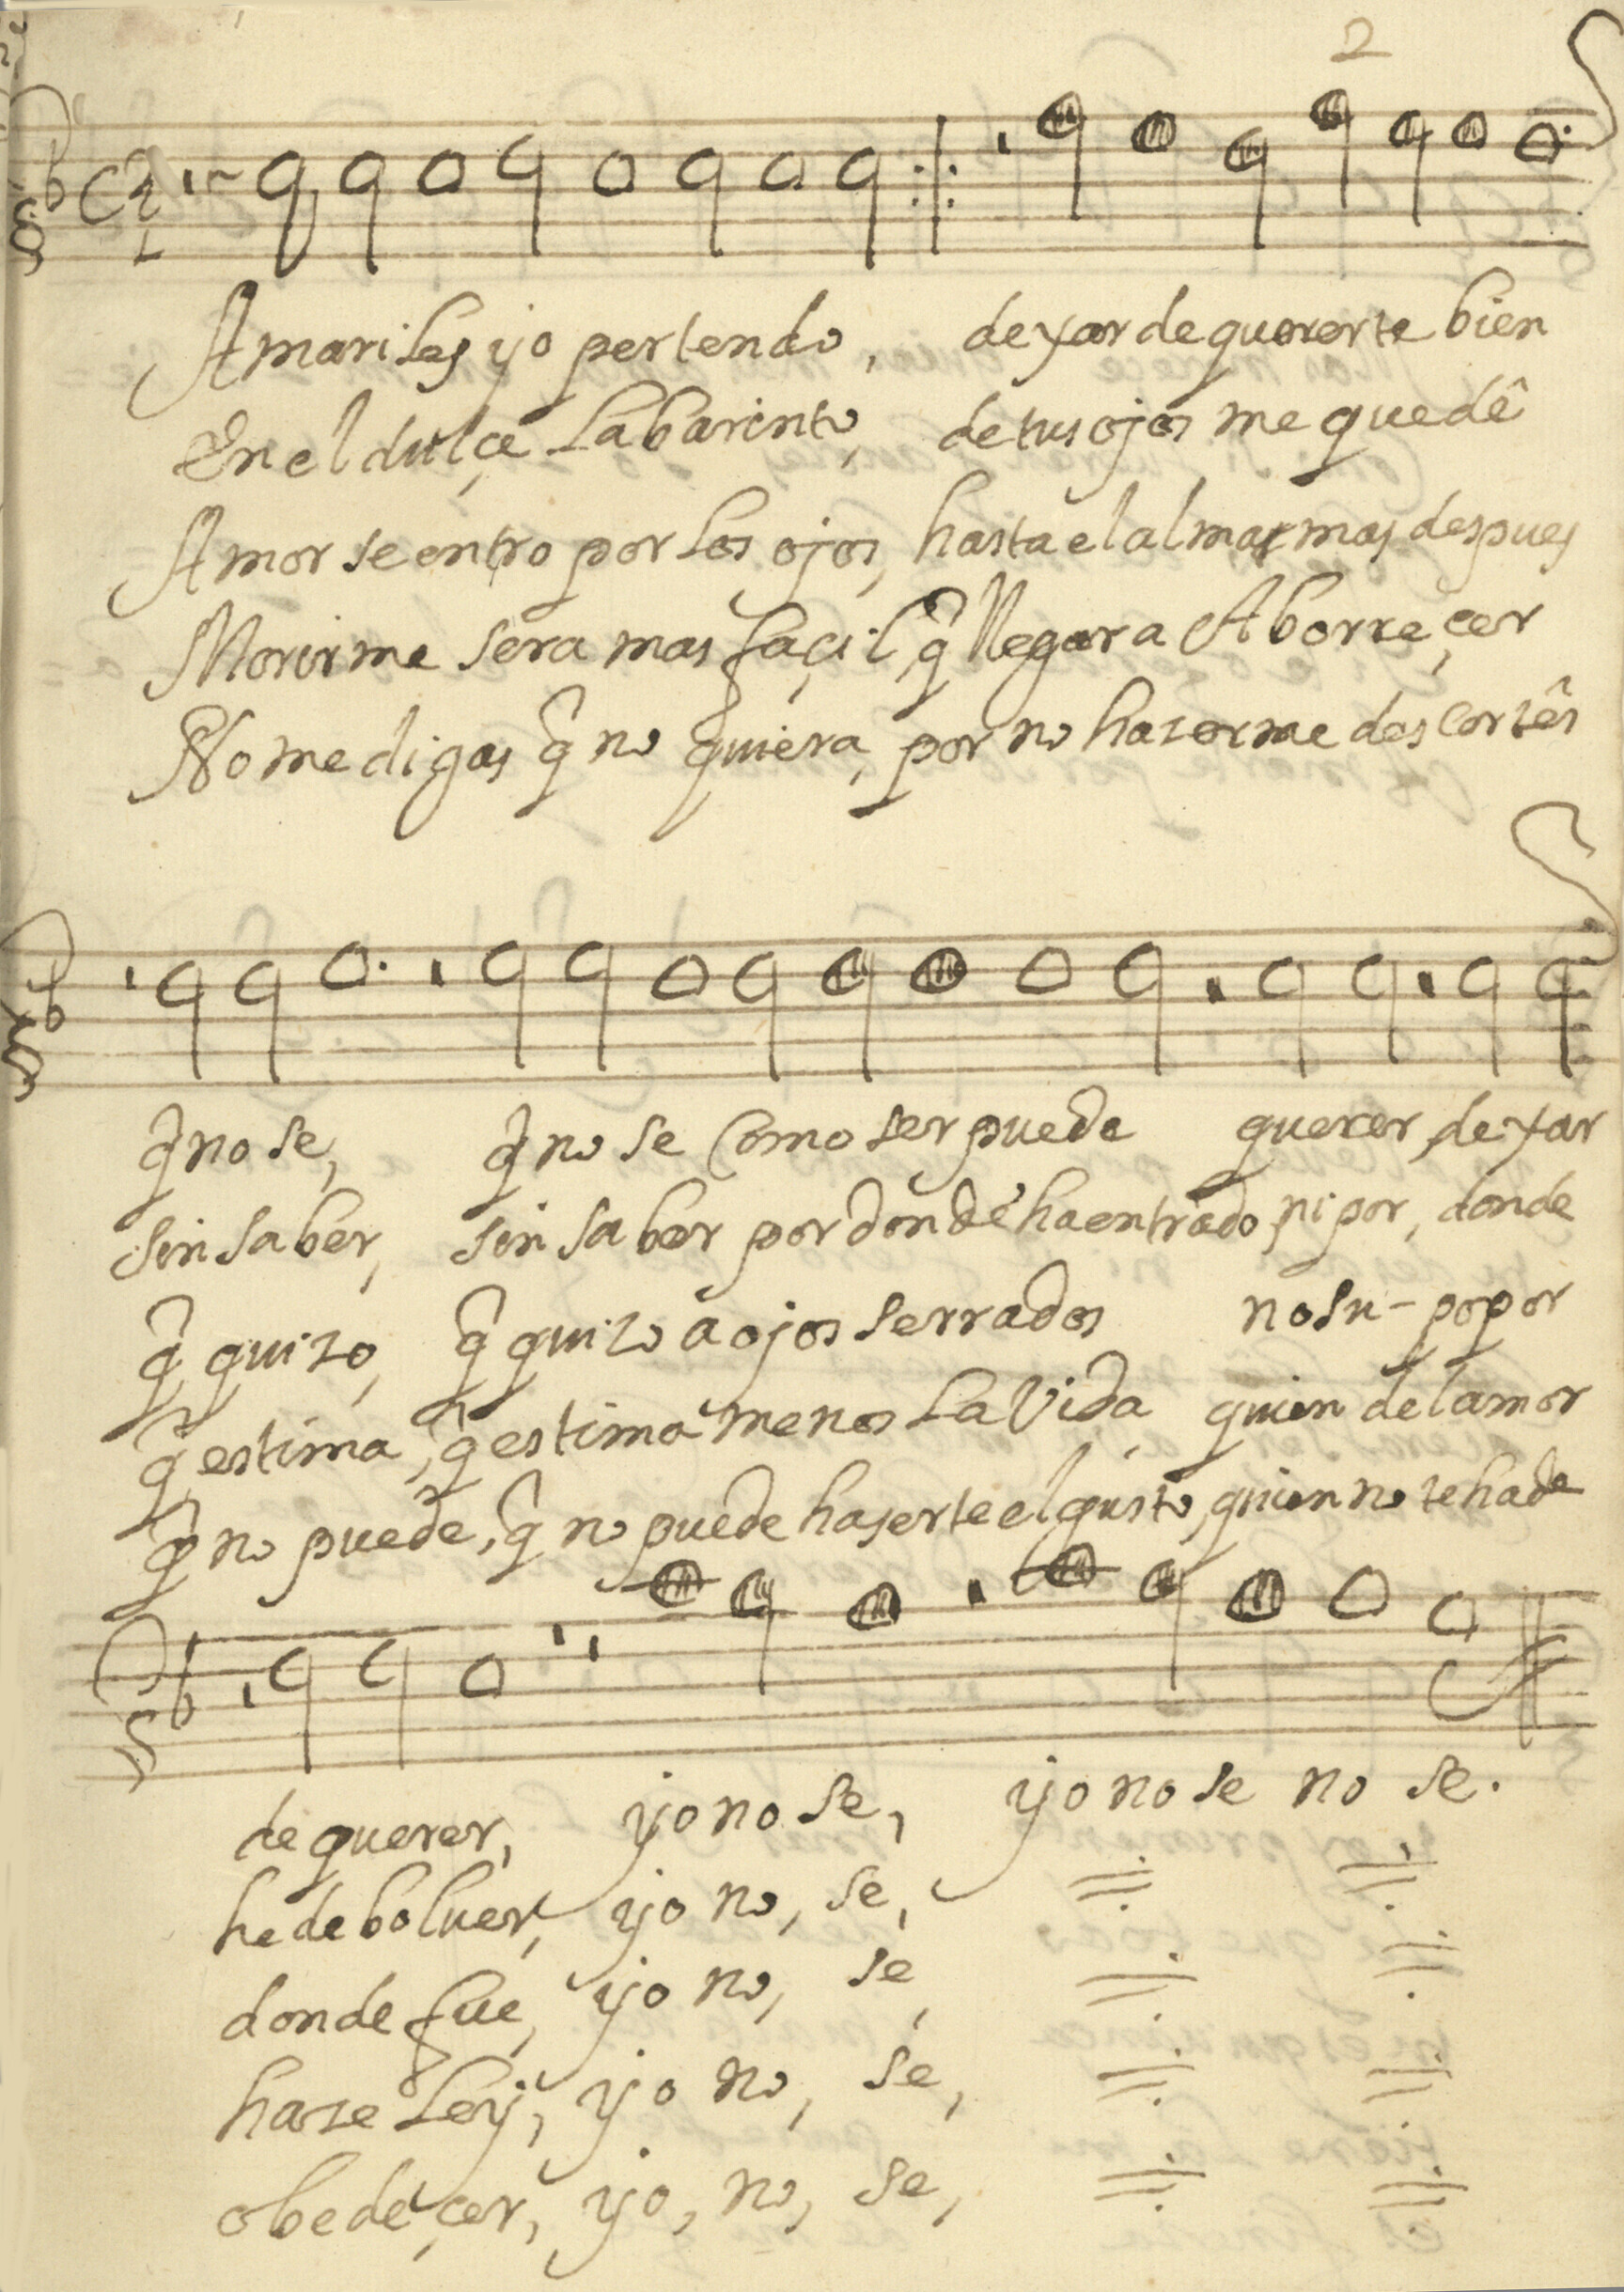 2
Amariles yo pertendo, dexar de quererte bien
En el dulçe Labarinto, de tus ojos me quedê
Amor se entro por Los ojos, hasta el alma mas despues
Morirme sera mas façil, q̂ llegar a Aborreçer
No me digas q̂ no quiera, por no hazerme descortês
q̂ no se, q̂ no se Como ser puede querer, dexar
sin saber, sin saber por donde ha entrado, ni por, donde
q̂ quizo, q̂ quizo a ojos serrados no su-po por
q̂ estima, q̂ estima menos La Vida, quien del amor
q̂ no puede, q̂ no puede haserte el gusto, quien no te ha de
de querer, yo no se, yo no se no se.
he de boluer, yo no, se,
donde fue, yo no, se,
haze Ley, yo no, se,
obedeçer, yo, no, se,